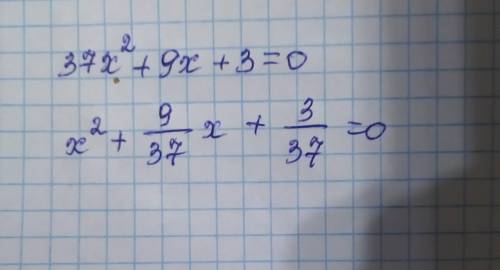 37x² + 9x + 3 = 0
x² + 9/37 x + 3/37 = 0